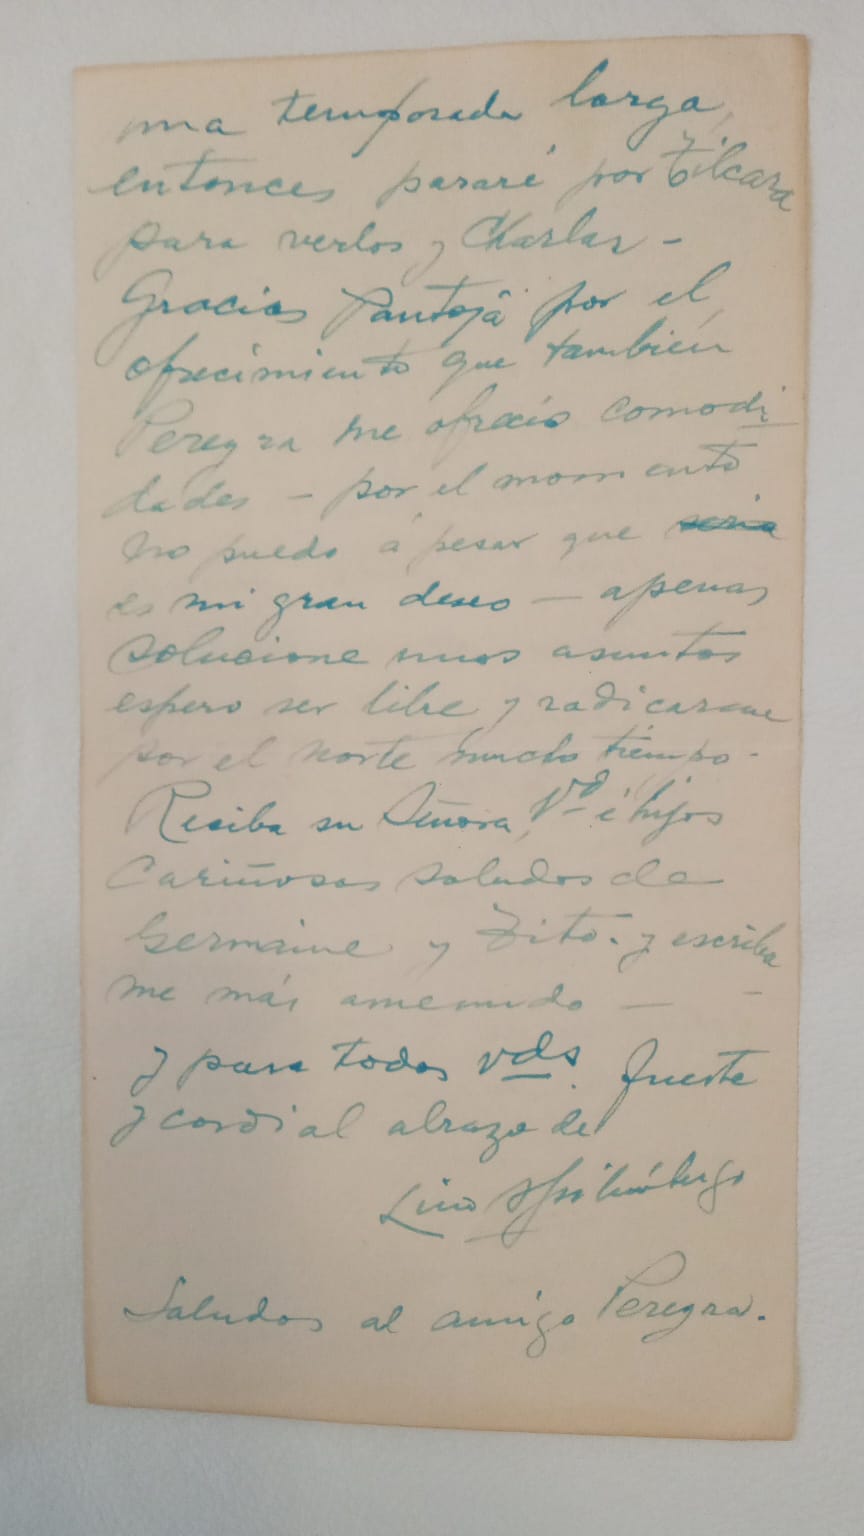 una temporada larga,
entonces pararé por Tilcara
para verlos y Charlar –
Gracias Pantoja por el
ofrecimiento que también
Peregra me ofreció comodi
dades – por el momento
no puedo á pesar que seria
es mi gran deseo – apenas
solucione unos asuntos
espero ser libre y radicarme
por el norte mucho tiempo –
Reciba su Señora, Vd é hijos
Cariñosos saludos de
Germaine y Tito. y escriba
me más amenudo – –
y para todos vds. fuerte
y cordial abrazo de
Lino Spilimbergo
Saludos al amigo Peregra.